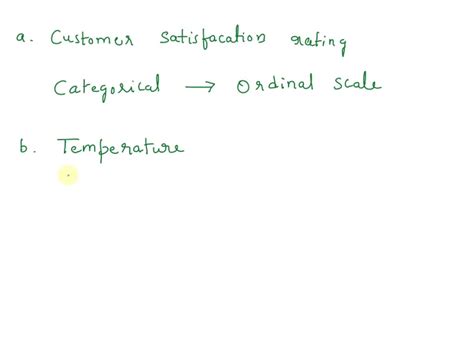 a. Customer Satisfacation rating
Categorical → Ordinal Scale
b. Temperature